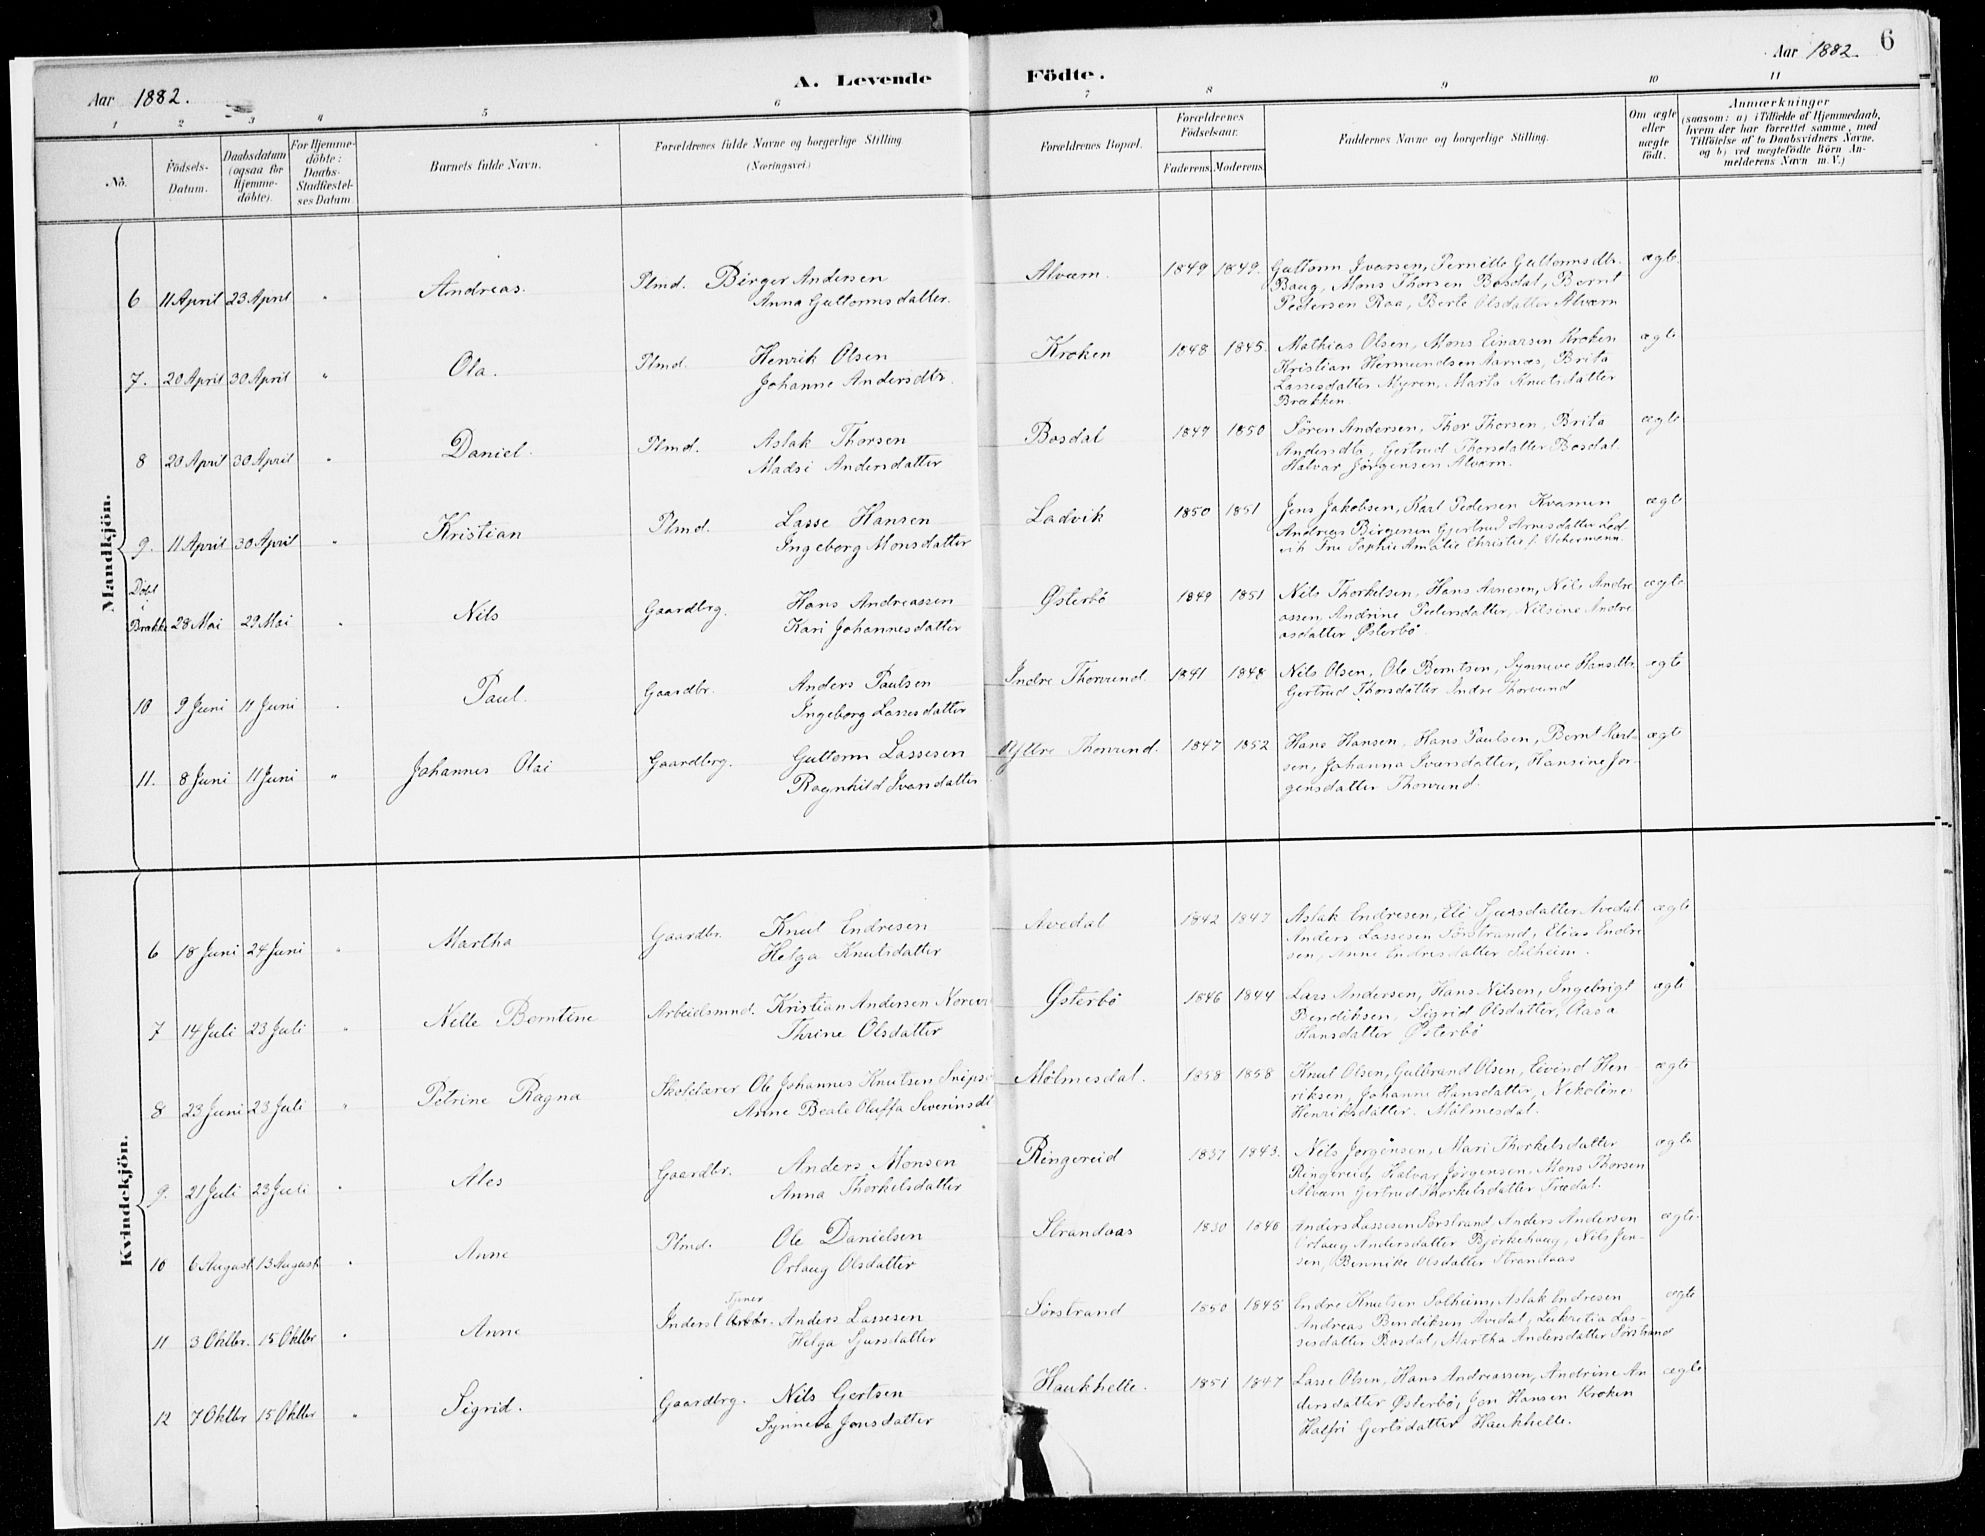 Aar 1882.
A. Levende Födte.
Aar 1882. 6
1 2 3 4 5 6 7 8 9 10 11
No. Födsels-Datum. Daabsdatum (ogsaa for Hjemme-döbte). For Hjemme-döbte: Daabs-Stadfæstel-ses Datum. Barnets fulde Navn. Forældrenes fulde Navne og borgerlige Stilling (Næringsvei) Forældrenes Bopæl. Forældrenes Födselsaar. Faderens. Moderens. Faddernes Navne og borgerlige Stilling. Om ægte eller uægte födt. Anmærkninger
(saasom: a) i Tilfælde af Hjemmedaab,
hvem der har forrettet samme, med
Tilföielse af to Daabsvidners Navne.
og b) ved uægtefödte Börn An-
melderens Navn m. V.)
Mandkjön.
6 11 April 23 April " Andreas. Plmd. Birger Andersen
Anna Guttormsdatter.
Alværn. 1849 1849. Guttorm Ivarsen, Pernille Guttormsdtr.
Baug, Mons Thorsen Bosdal, Bernt
Pedersen Raa, Berte Olsdatter Alværn
ægte
7. 20 April 30 April " Ola. Plmd. Henrik Olsen
Johanne Andersdtr.
Kroken 1848 1845. Mathias Olsen, Mons Einarsen Kroken
Kristian Hermundsen Aarnæs, Brita
Lassesdatter Myren, Marta Knutsdatter
Brækken.
ægte
8 20 April 30 April " Daniel. Plmd. Aslak Thorsen
Madsi Andersdatter
Bosdal 1847 1850 Søren Andersen, Thor Thorsen, Brita
Andersdtr, Gertrud Thorsdatter Bosdal.
Halvar Jørgensen Alværn.
ægte
9. 11 April 30 April " Kristian Plmd. Lasse Hansen
Ingeborg Monsdatter
Ladvik 1850 1851 Jens Jakobsen, Karl Pedersen Kvamen
Andreas Birgersen Gjertrud Arnesdatter Lad-
vik Fru Sophie Amalie Christie f. Uchermann.
ægte
Døbt i Brække 28 Mai 29 Mai " Nils Gaardbrg. Hans Andreassen
Kari Johannesdatter
Østerbø 1849 1851 Nils Thorkelsen, Hans Arnesen, Nils Andre
assen, Andrine Pedersdatter, Nilsine Andre
asdatter Østerbø.
ægte
10 9 Juni 11 Juni " Paul. Gaardbr. Anders Paulsen
Ingeborg Lassesdatter
Indre Thorvund. 1841 1848 Nils Olsen, Ole Berntsen, Synneve Hansdtr.
Gertrud Thorsdatter Indre Thorvund
ægte
11. 8 Juni 11 Juni " Johannes Olai Gaardbrg. Guttorm Lassesen
Ragnhild Ivarsdatter
Yttre Thorvund. 1847 1852 Hans Hansen, Hans Paulsen, Bernt Karl-
sen, Johanna Ivarsdatter, Hansine Jør-
gensdatter Thorvund.
ægte
Kvindekjön.
6 18 Juni 24 Juni " Martha Gaardbr. Knut Endresen
Helga Knutsdatter
Avedal 1842 1847 Aslak Endresen, Eli Sjursdatter Avedal
Anders Lassesen Sørstrand, Elias Endre
sen, Anne Endresdatter Solheim.
ægte
7 14 Juli 23 Juli " Nelle Berntine Arbeidsmnd. Kristian Andersen
Thrine Olsdatter
Østerbø 1846 1844 Lars Andersen, Hans Nilsen, Ingebrigt
Bendiksen, Sigrid Olsdatter, Aasa
Hansdatter Østerbø
ægte
8 23 Juni 23 Juli " Petrine Ragna Skolelærer Ole Johannes Knutsen
Anne Beate Oluffa Severinsdt
Mølmesdal. 1858 1858 Knut Olsen, Gulbrand Olsen, Eivind Hen
riksen, Johanne Hansdatter, Nikoline
Henriksdatter. Mølmesdal.
ægte
9. 21 Juli 23 Juli " Ales Gaardbr. Anders Monsen
Anna Thorkelsdatter
Ringereid 1837 1843. Nils Jørgensen, Mari Thorkelsdatter
Ringereid, Halvar Jørgensen, Mons Thorsen
Alværn Gertrud Thorkelsdatter Trædal.
ægte
10 6 August 13 August " Anne Plmd. Ole Danielsen
Orlaug Olsdatter
Strandaas 1830 1840 Anders Lassesen Sørstrand, Anders Andersen
Orlaug Andersdatter Bjørkehaug, Nils Jen-
sen, Bennike Olsdatter Strandaas
ægte.
11 3 Oktbr. 15 Oktbr " Anne Tjener
Anders Lassesen
Helga Sjursdatter
Sørstrand 1850 1845 Endre Knutsen Solheim, Aslak Endresen
Andreas Bendiksen Avedal, Lukretia Las-
sesdatter Bosdal, Martha Andersdatter Sørstrand
ægte
12 7 Oktbr 15 Oktbr " Sigrid. Gaardbrg. Nils Gertsen
Synneva Jonsdatter
Haukhelle. 1851 1847 Lasse Olsen, Hans Andreassen, Andrine An
dersdatter Østerbø, Jon Hansen Kroken
Halfri Gertsdatter Haukhelle.
ægte